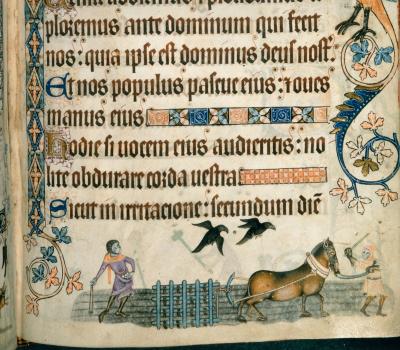 ploremus ante dominum qui fecit
nos : quia ipse est dominus deus nost'.
Et nos populus pascue eius : ⁊ oues
manus eius
Hodie si uocem eius audieritis : no
lite obdurare corda uestra
Sicut in irritacione : secundum diē